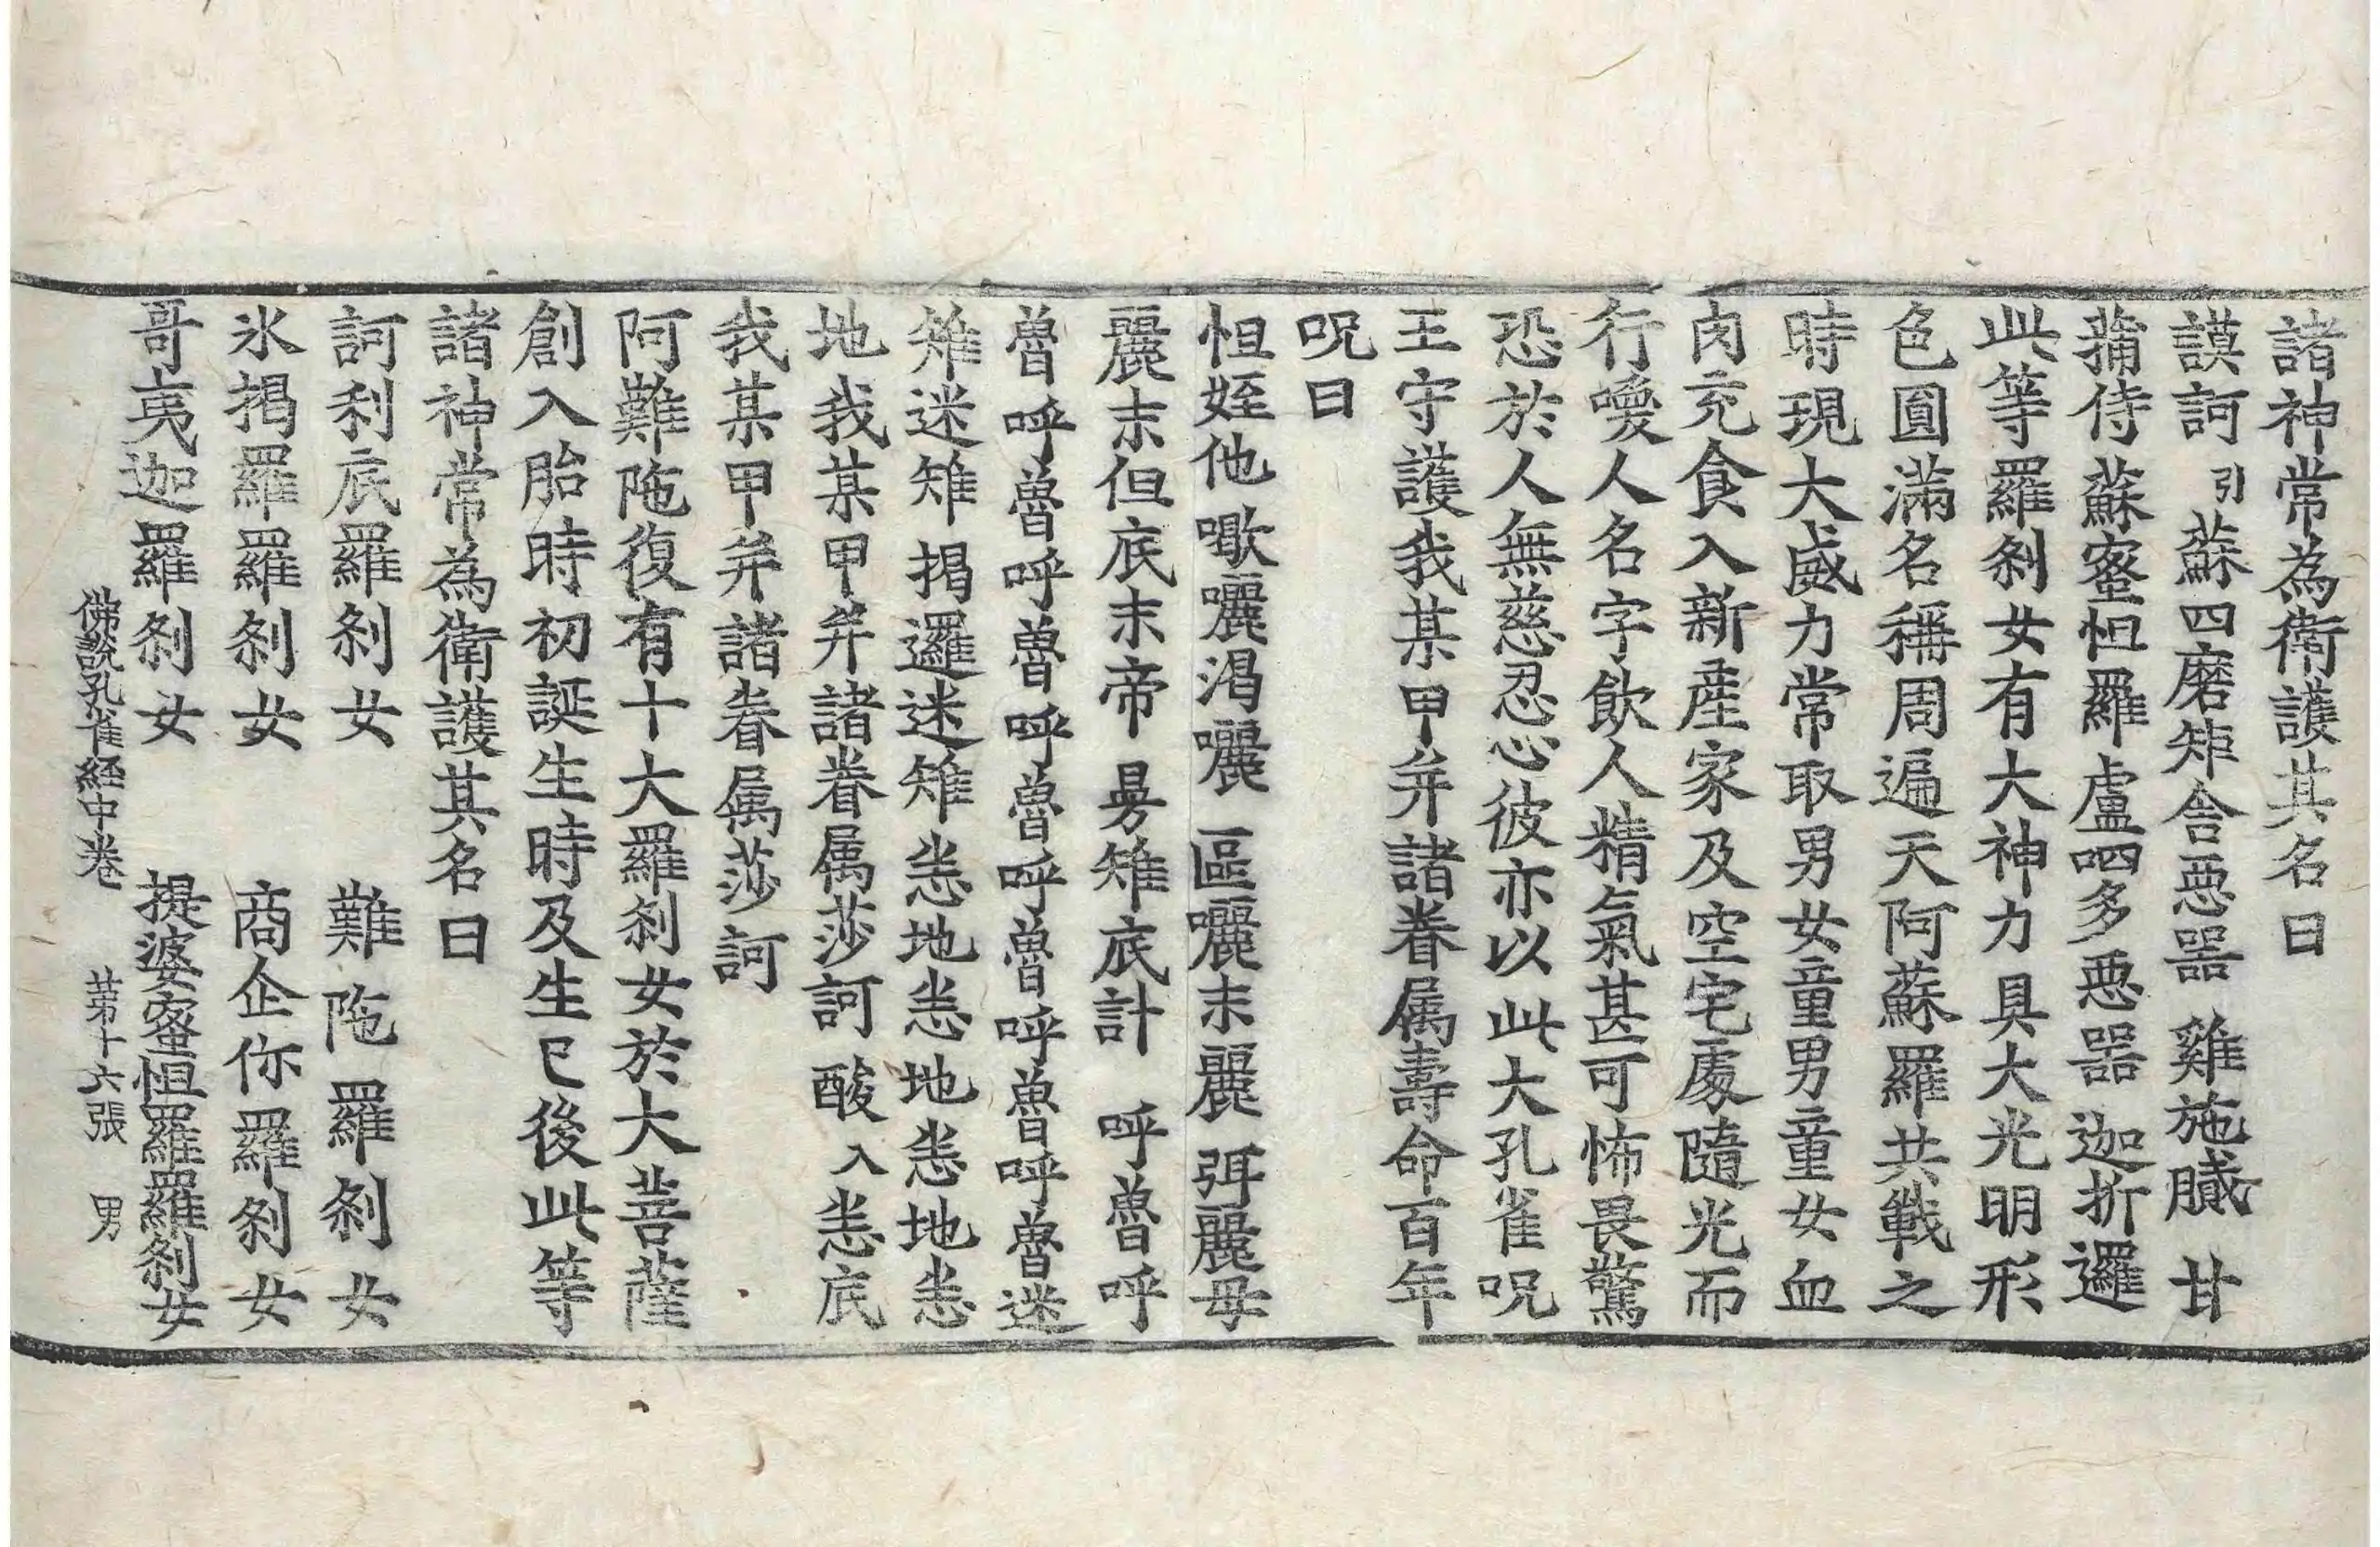 諸神常為衛護其名曰
謨訶引蘇四磨矩舍惡器 雞施膩 甘
蒱侍 蘇蜜怛羅 盧呬多惡器 迦折邏
此等羅剎女有大神力具大光明形
色圓滿名稱周遍天阿蘇羅共戰之
時現大威力常取男女童男童女血
肉充食入新產家及空宅處隨光而
行喚人名字飲人精氣甚可怖畏驚
恐於人無慈忍心彼亦以此大孔雀呪
王守護我某甲并諸眷属壽命百年
呪曰
怛姪他 曒囇渇囇 區囇末麗 弭麗母
麗末但底末帝 曼雉底計 呼魯呼
魯呼魯呼魯呼魯呼魯呼魯呼魯迷
雉迷雉 揭邏迷雉 恙地恙地恙地恙
地我某甲并諸眷属莎訶 酸入恙底
我某甲并諸眷属莎訶
阿難陁復有十大羅剎女於大菩薩
創入胎時初誕生時及生已後此等
諸神常為衛護其名曰
訶利底羅剎女 難陁羅剎女
氷揭羅羅剎女 商企你羅剎女
哥夷迦羅剎女 提婆蜜怛羅羅剎女
佛說孔雀經中卷 苐十六張 男